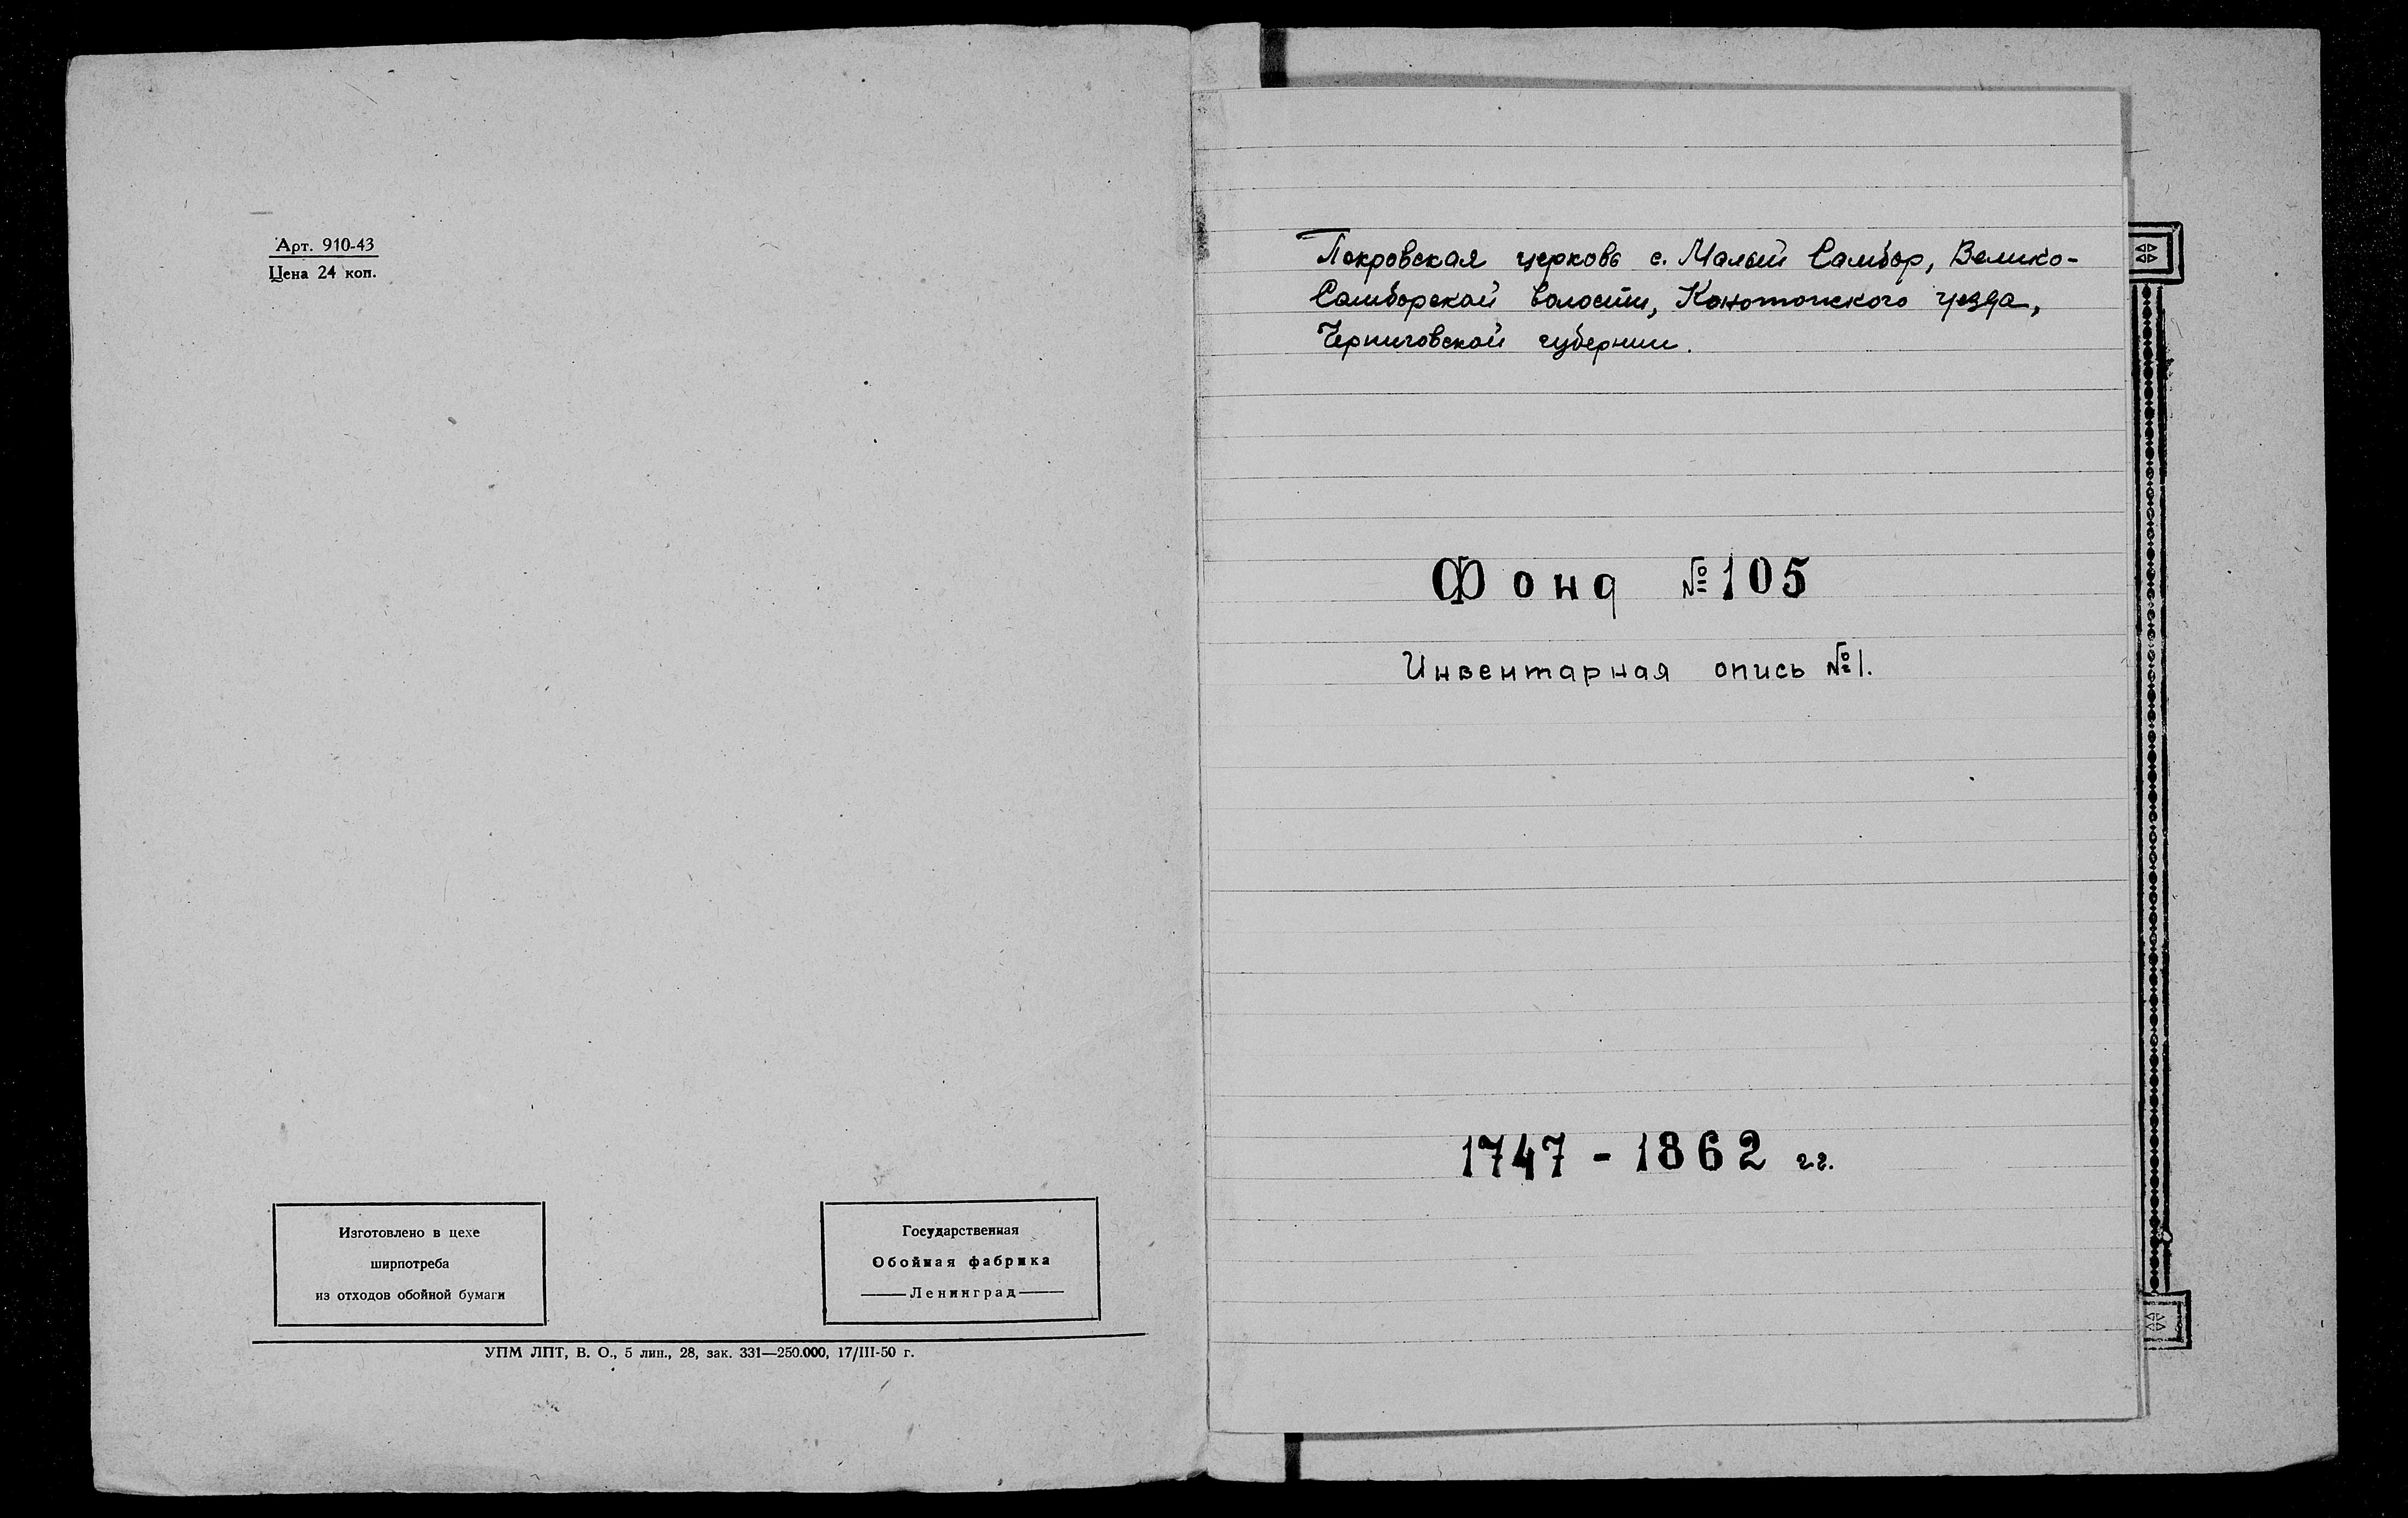 Арт. 910-43
Цена 24 коп.
Изготовлено в цехе
ширпотреба
из отходов обойной бумаги
Государственная
Обойная фабрика
Ленинград
УПМ ЛПТ, В. О., 5 лин., 28, зак. 331—250.000, 17/III-50 г.
Покровская церковь с. Малый Самбор, Велико-
Самборской волости, Конотопского уезда,
Черниговской губернии.
Фонд №105
Инвентарная опись №1.
1747 - 1862 гг.